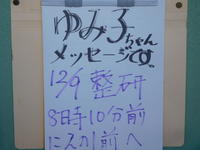 ゆみ子ちゃん
メッセージです
139 整研
8時10分前
にスカ1前へ